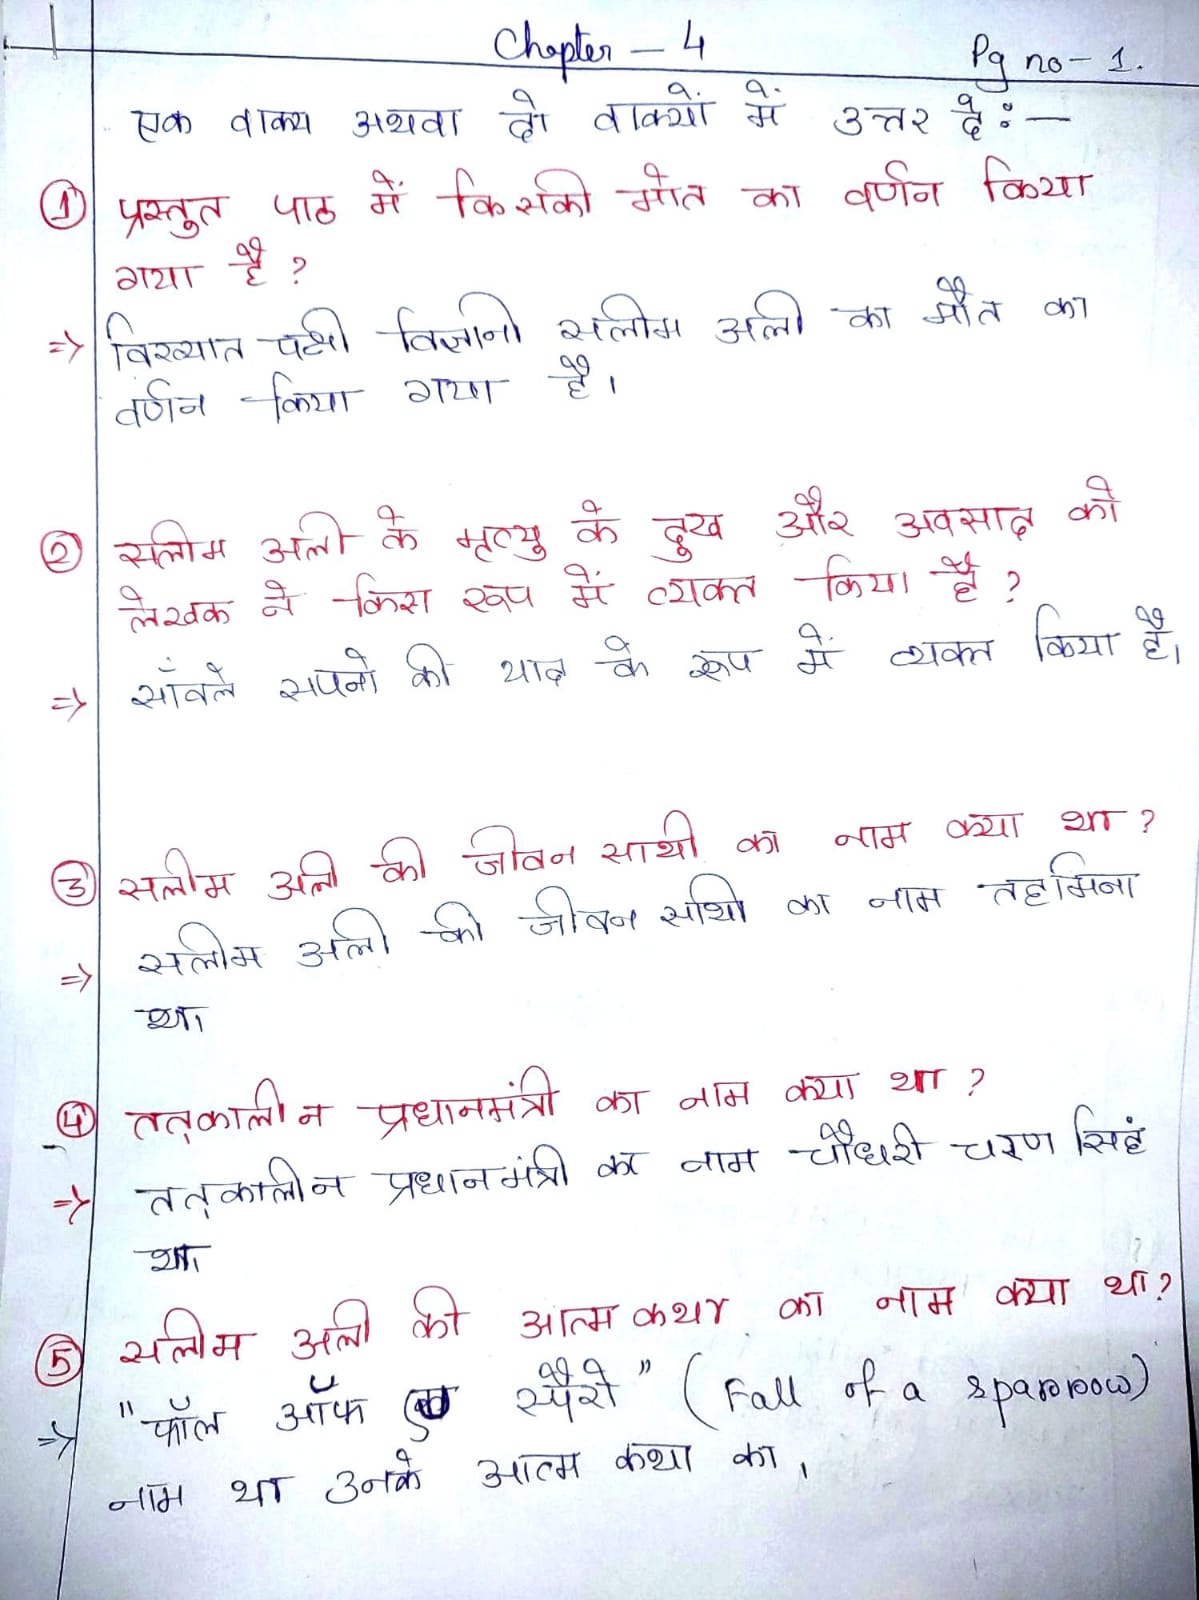 Chapter - 4
Pg no - 1.
एक वाक्य अथवा दो वाक्यों में उत्तर दें :-
① प्रस्तुत पाठ में किसकी मौत का वर्णन किया
गया है ?
=> विख्यात पक्षी विज्ञानी सलीम अली का मौत का
वर्णन किया गया है।
② सलीम अली के मृत्यु के दुख और अवसाद को
लेखक ने किस रूप में व्यक्त किया है ?
=> साँवले सपनो की याद के रूप में व्यक्त किया है।
③ सलीम अली की जीवन साथी का नाम क्या था ?
=> सलीम अली की जीवन साथी का नाम तहमिना
था।
④ तत्कालीन प्रधानमंत्री का नाम क्या था ?
=> तत्कालीन प्रधानमंत्री का नाम चौधरी चरण सिहं
था।
⑤ सलीम अली की आत्म कथा का नाम क्या था ?
=> "फॉल ऑफ ए स्पैरो" (Fall of a sparrow)
नाम था उनके आत्म कथा का,